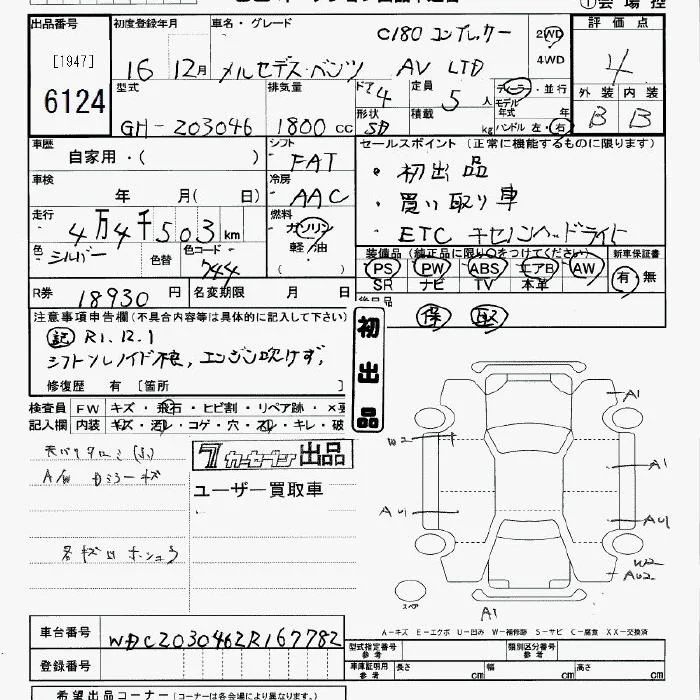 ①会場控
出品番号
[1947]
6124
初度登録年月
16 12月
車名・グレード
C180 コンプレッサー
メルセデス・ベンツ AV LTD
2WD
4WD
評価点
4
外装 内装
B B
型式
GH-203046
排気量
1800 cc
ドア 4
形状 SD
定員 5 人
積載 kg
ディーラー・並行
モデル年式 年
ハンドル 左・右
車歴
自家用・( )
シフト
FAT
セールスポイント (正常に機能するものに限ります)
・初出品
・買い取り車
・ETC キセノンヘッドライト
車検
年 月(日)
冷房
AAC
走行
4万4千503km
燃料
ガソリン
軽油
( )
色 シルバー
色替
色コード 744
装備品 (純正品に限り○をつけてください)
PS PW ABS エアB AW
SR ナビ TV 本革
新車保証書
有 無
R券 18930円
名変期限 月 日
後日品
保 取
注意事項申告欄 (不具合内容等は具体的に記入して下さい)
記 R1.12.1
シフトソレノイド不良, エンジン吹けず,
修復歴 有 [箇所 ]
初出品
検査員 FW キズ・飛石・ヒビ割・リペア跡・×要
記入欄 内装 キズ・汚レ・コゲ・穴・スレ・キレ・破
A/W Dミラーキズ
カーセブン 出品
ユーザー買取車
A1
W2
A1
AU1
AU1
W2
AU2
スペア
A1
A-キズ E-エクボ U-凹み W-補修跡 S-サビ C-腐食 XX-交換済
車台番号
WDC2030462R167782
登録番号
型式指定番号 参考
類別区分番号 参考
車庫証明用 参考
長さ cm 幅 cm 高さ cm
希望出品コーナー (コーナーは各会場により異なります。)